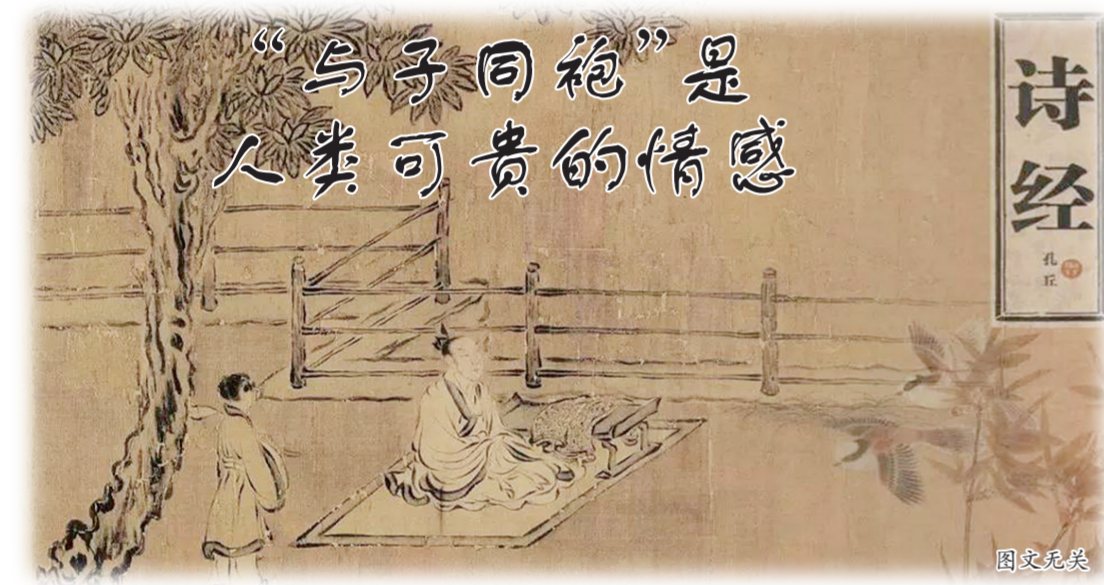 “与子同袍”是
人类可贵的情感
诗经
孔丘
图文无关